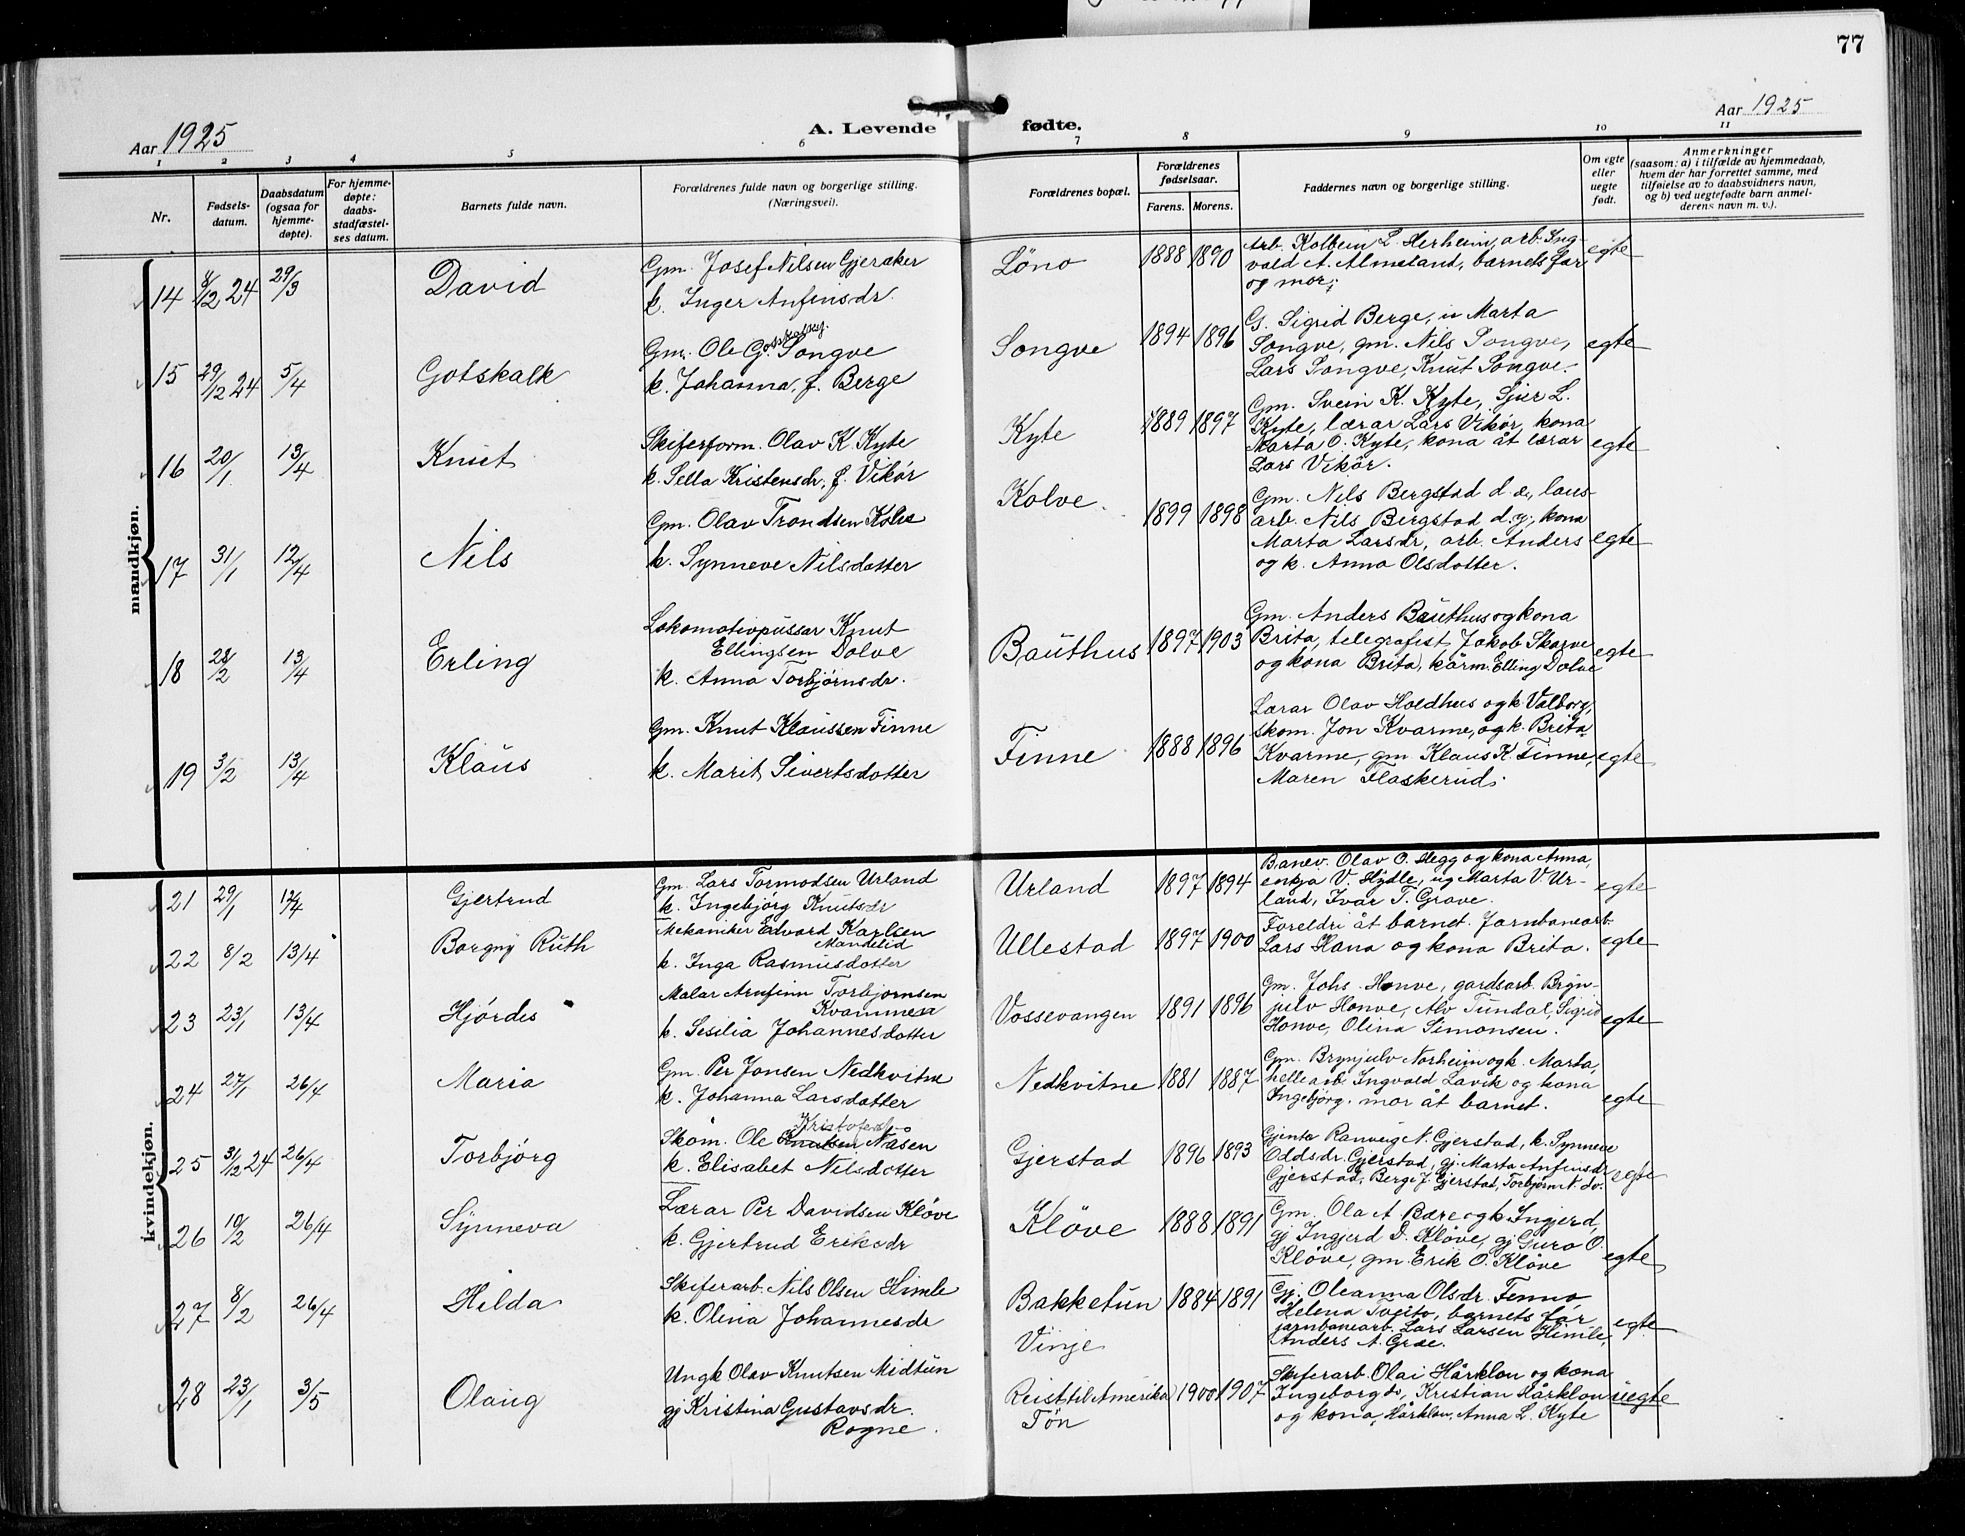 77
Aar 1925
A. Levende fødte.
Aar 1925
1 2 3 4 5 6 7 8 9 10 11
Nr.
Fødsels-
datum.
Daabsdatum
(ogsaa for
hjemme-
døpte).
For hjemme-
døpte:
daabs-
stadfæstel-
ses datum.
Barnets fulde navn.
Forældrenes fulde navn og borgerlige stilling.
(Næringsvei).
Forældrenes bopæl.
Forældrenes
fødselsaar.
Farens. Morens.
Faddernes navn og borgerlige stilling.
Om egte
eller
uegte
født.
Anmerkninger
(saasom: a) i tilfælde av hjemmedaab,
hvem der har forrettet samme, med
tilføielse av to daabsvidners navn,
og b) ved uegtefødte barn anmel-
derens navn m. v.).
mandkjøn.
14 8/12 24 29/3 David
Gm. Josef Nilsen Gjeraker
k. Inger Anfinsdr.
Löno 1888 1890
Arb. Kolbein L. Herheim, arb. Ing-
vald A. Almeland, barnets far
og mor;
egte
15 29/12 24 5/4 Gotskalk
Gm. Ole G. Songve
k. Johanna, f. Berge
Songve 1894 1896
G. Sigrid Berge, u Marta
Songve, gm. Nils Songve,
Lars Songve, Knut Songve.
egte
16 20/1 13/4 Knut
Skiferform. Olav K. Kyte
k. Sella Kristensdr, f. Vikör
Kyte 1889 1897
Gm. Svein K. Kyte, Sjur L.
Kyte, lærar Lars Vikör, kona
Marta O. Kyte, kona åt lærar
Lars Vikör.
egte
17 31/1 12/4 Nils
Gm. Olav Trondsen Kolve
k. Synneve Nilsdotter
Kolve. 1899 1898
Gm. Nils Bergstad d. e., laus-
arb. Nils Bergstad d. y., kona
Marta Larsdr, arb. Anders
og k. Anna Olsdotter.
egte
18 28/2 13/4 Erling
Lokomotivpussar Knut
Ellingsen Dolve
k. Anna Torbjørnsdr.
Bauthus 1897 1903
Gm. Anders Bauthus og kona
Brita, telegrafist Jakob Skorve
og kona Brita, kårm. Elling Dolve
egte
19 3/2 13/4 Klaus
Gm. Knut Klaussen Finne
k. Marit Sivertsdotter
Finne 1888 1896
Lærar Olav Holdhus og k. Valborg,
skom. Jon Kvarme, og k. Brita
Kvarme, gm Klaus K. Finne,
Maren Flaskerud.
egte
kvindekjøn.
21 29/1 12/4 Gjertrud
Gm. Lars Tormodsen Urland
k. Ingebjörg Knutsdr
Urland 1897 1894
Banev. Olav O. Hegg og kona Anna,
enkja V. Hydle, ug Marta V. Ur-
land, Ivar T. Grove.
egte
22 8/2 13/4 Borgny Ruth
Mekaniker Edvard Karlsen
Mandelid
k. Inga Rasmusdotter
Ullestad 1897 1900
Foreldri åt barnet. Jarnbanearb.
Lars Hana og kona Brita.
egte
23 23/1 13/4 Hjördis
Malar Arnfinn Torbjornsen
Kvammen
k. Sesilia Johannesdotter
Vossevangen 1891 1896
Gm. Johs. Honve, gardsarb. Bryn-
julv Honve, Alv Tundal, Sigrid
Honve, Olina Simonsen.
egte
24 27/1 26/4 Maria
Gm. Per Jonsen Nedkvitne
k. Johanna Larsdotter
Nedkvitne 1881 1887
Gm. Brynjulv Norheim og k. Marta,
hellearb Ingvald Lavik og kona
Ingebjörg. mor åt barnet.
egte
25 31/12 24 26/4 Torbjörg
Kristofers
Skom. Ole Knutsen Nåsen
k. Elisabet Nilsdotter
Gjerstad 1896 1893
Gjenta Ranveig N. Gjerstad, k. Synneve
Oddsdr. Gjerstad, gj. Marta Anfinsdr
Gjerstad, Berge J. Gjerstad, Torbjörn N. do.
egte
26 19/2 26/4 Synneva
Lærar Per Davidsen Klöve
k. Gjertrud Eriksdr
Klöve 1888 1891
Gm. Ola A Bære og k Ingjerd,
gj Ingjerd D. Klöve, gj Guro O.
Klöve, gm. Erik O. Klöve
egte
27 8/2 26/4 Hilda
Skiferarb. Nils Olsen Himle
k. Olina Johannesdr
Bakketun
Vinje
1884 1891
Gj. Oleanna Olsdr. Fenno
Helena Tveito, barnets far,
jarnbanearb. Lars Larsen Himle,
Anders A. Græe.
egte
28 23/1 3/5 Olaug
Ungk Olav Knutsen Midtun
gj Kristina Gustavsdr.
Rogne.
Reist til Amerika
Tön
1900 1907
Skiferarb. Olai Hårklau og kona
Ingeborg do, Kristian Hårklau
og kona, Hårklau, Anna L. Kyte
uegte